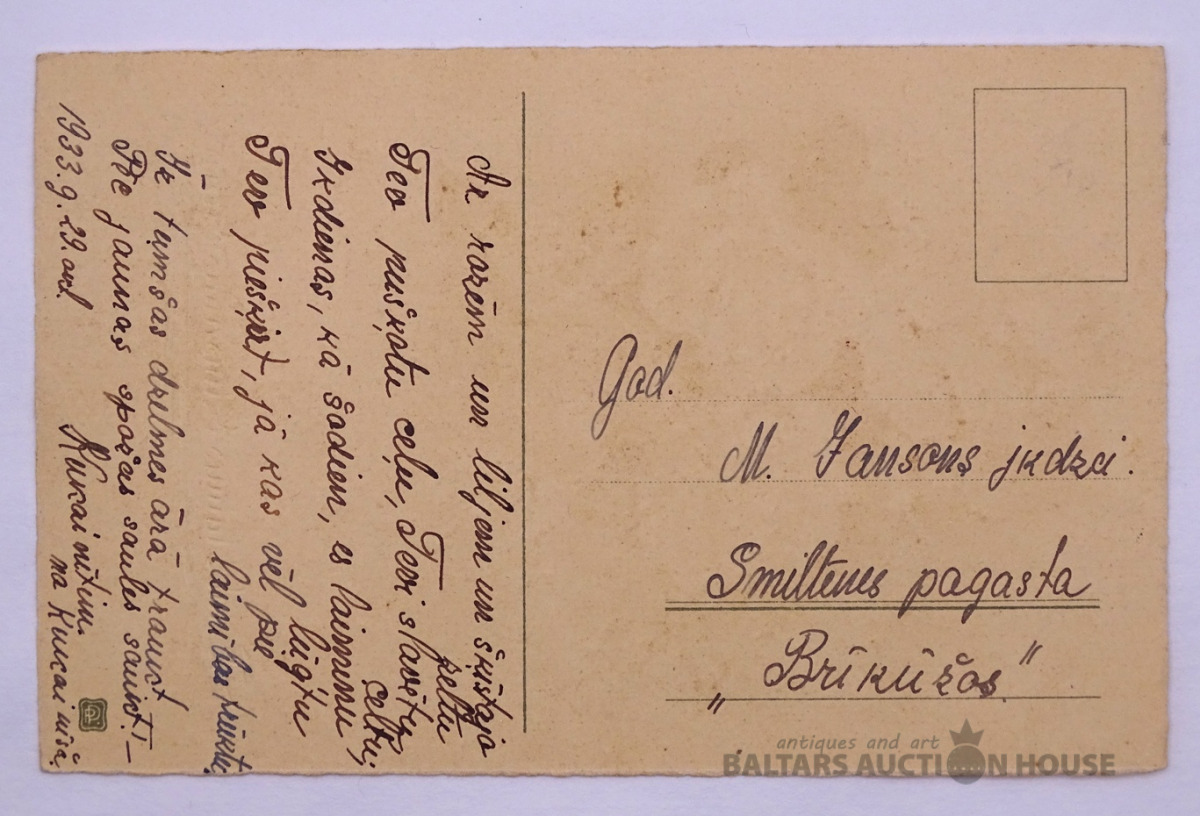 Ar rozēm un liljem un šķīstajo
zeltu
Tev pušķotu ceļu, Tevi slavētu,
celtu;
Ikdienas, kā šodien, es laimību
lūgtu
Tev piešķirt, jā kas vēl pie
laimības trūktu.
tumšas dzelmes ārā traukt
Pēc jaunas spožas saules saukt! —
1933.g. 29.
God.
M. Jansons jkdzei.
Smiltenes pagasta
„Brīkūžos"
antiques and art
BALTARS AUCTION HOUSE